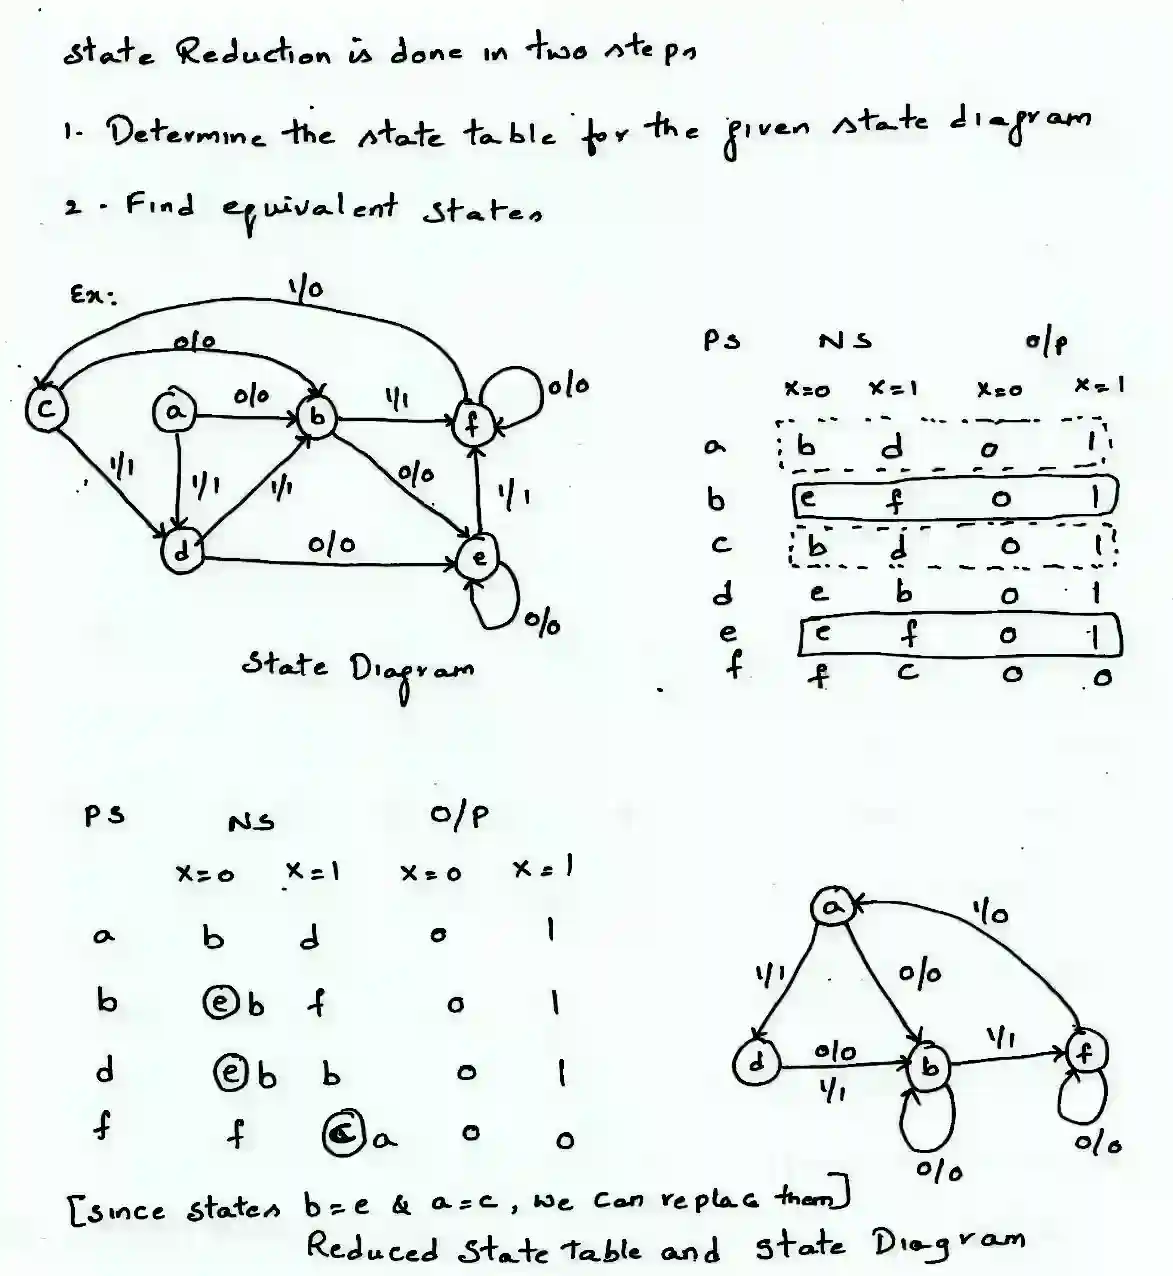 State Reduction is done in two steps
1. Determine the state table for the given state diagram
2. Find equivalent states
Ex:
1/0
0/0
c
a
0/0
b
1/1
f
0/0
1/1
1/1
1/1
0/0
1/1
d
0/0
e
0/0
State Diagram
PS NS o/p
X=0 X=1 X=0 X=1
a b d 0 1
b e f 0 1
c b d 0 1
d e b 0 1
e e f 0 1
f f c 0 0
PS NS O/P
X=0 X=1 X=0 X=1
a b d 0 1
b e b f 0 1
d e b b 0 1
f f c a 0 0
a
1/0
1/1
0/0
d
0/0
1/1
b
1/1
f
0/0
0/0
[Since states b=e & a=c, we can replac them]
Reduced State Table and State Diagram